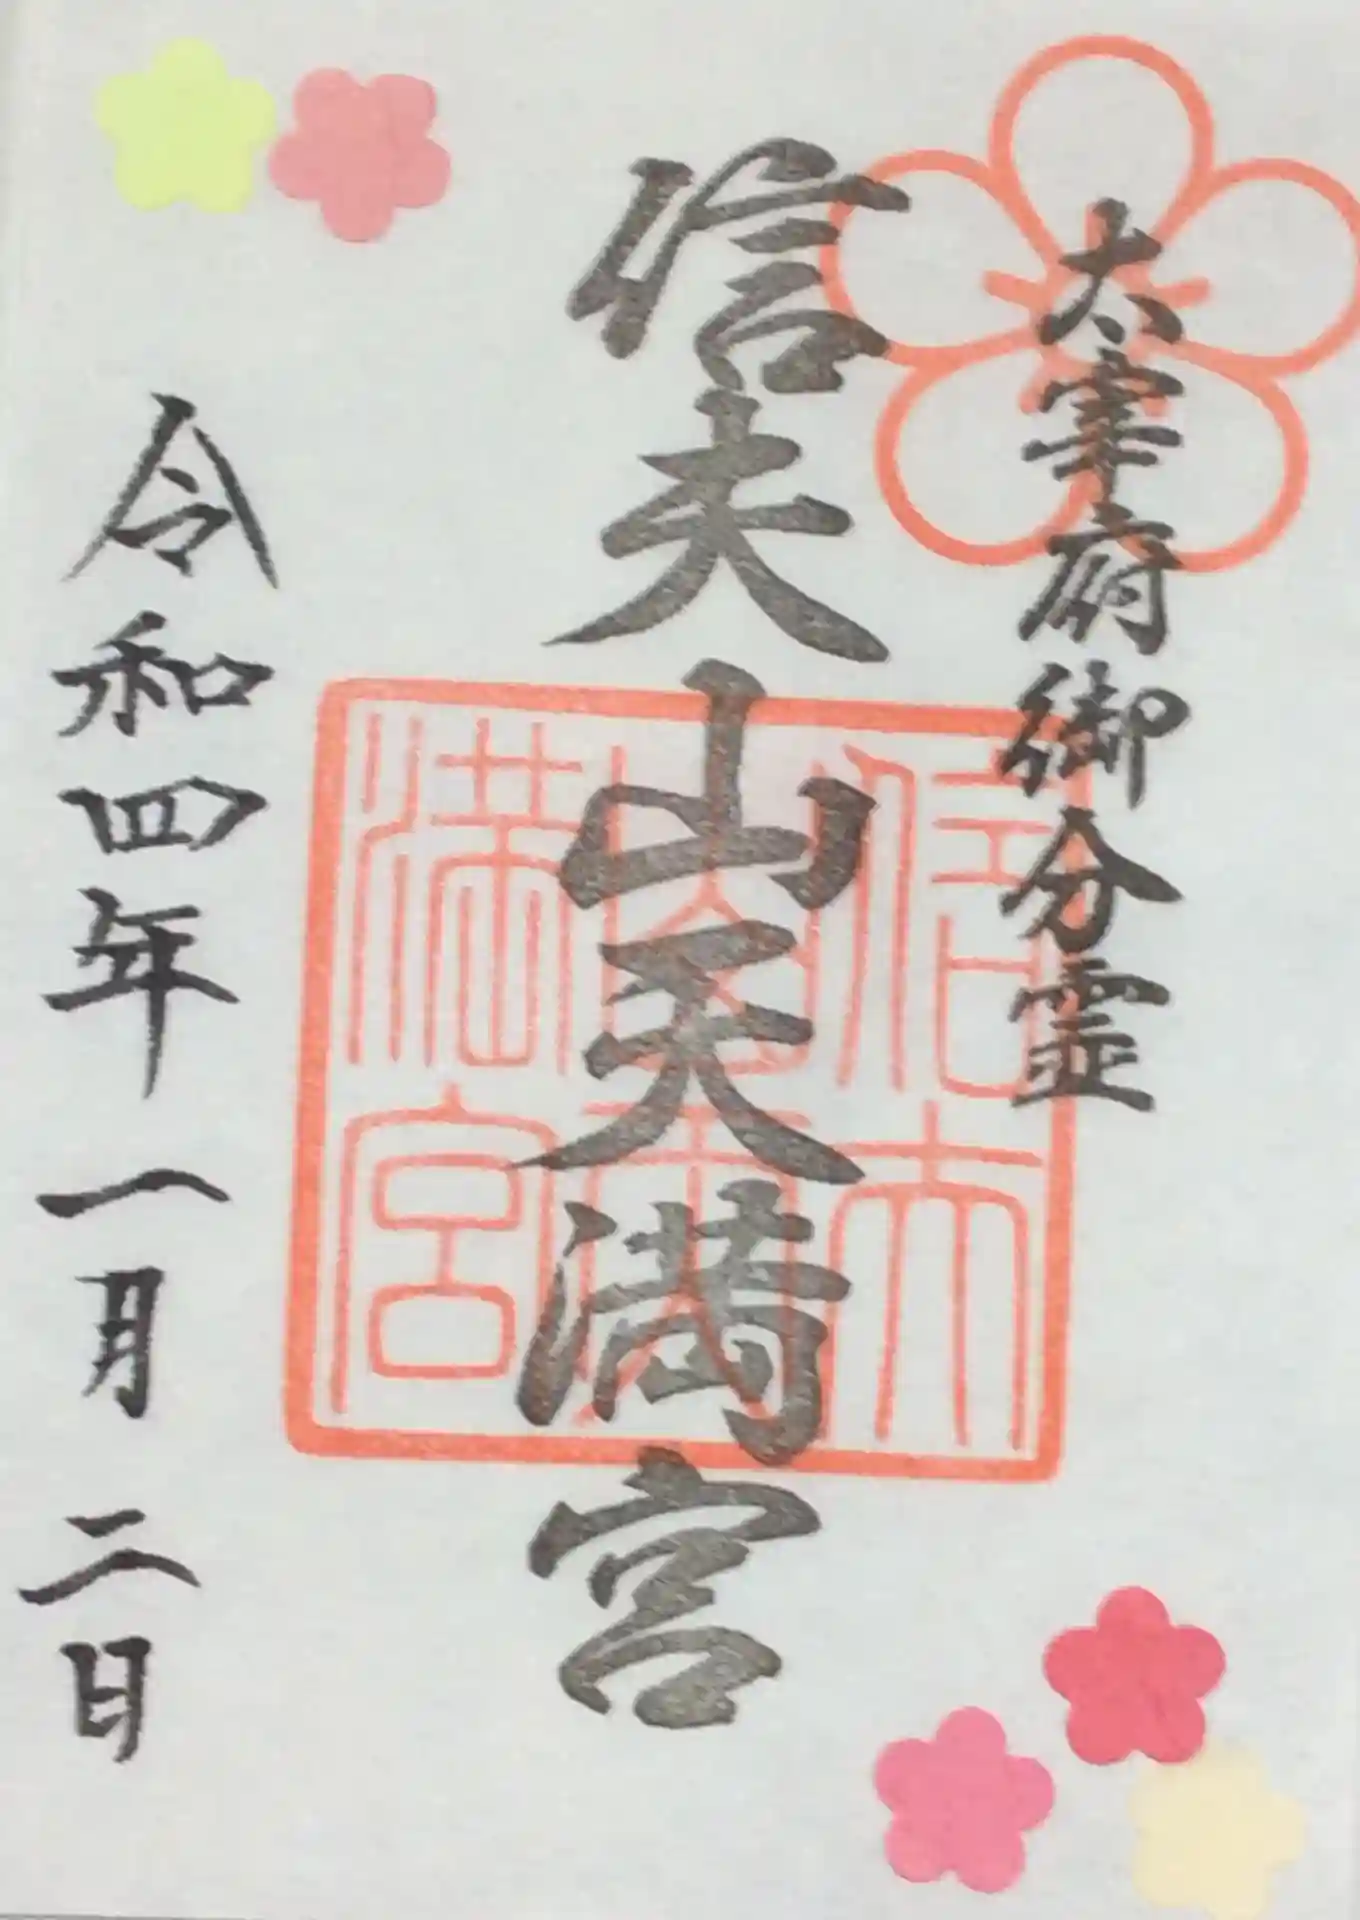 太宰府御分霊
信夫山天満宮
信夫山天満宮
令和四年一月二日